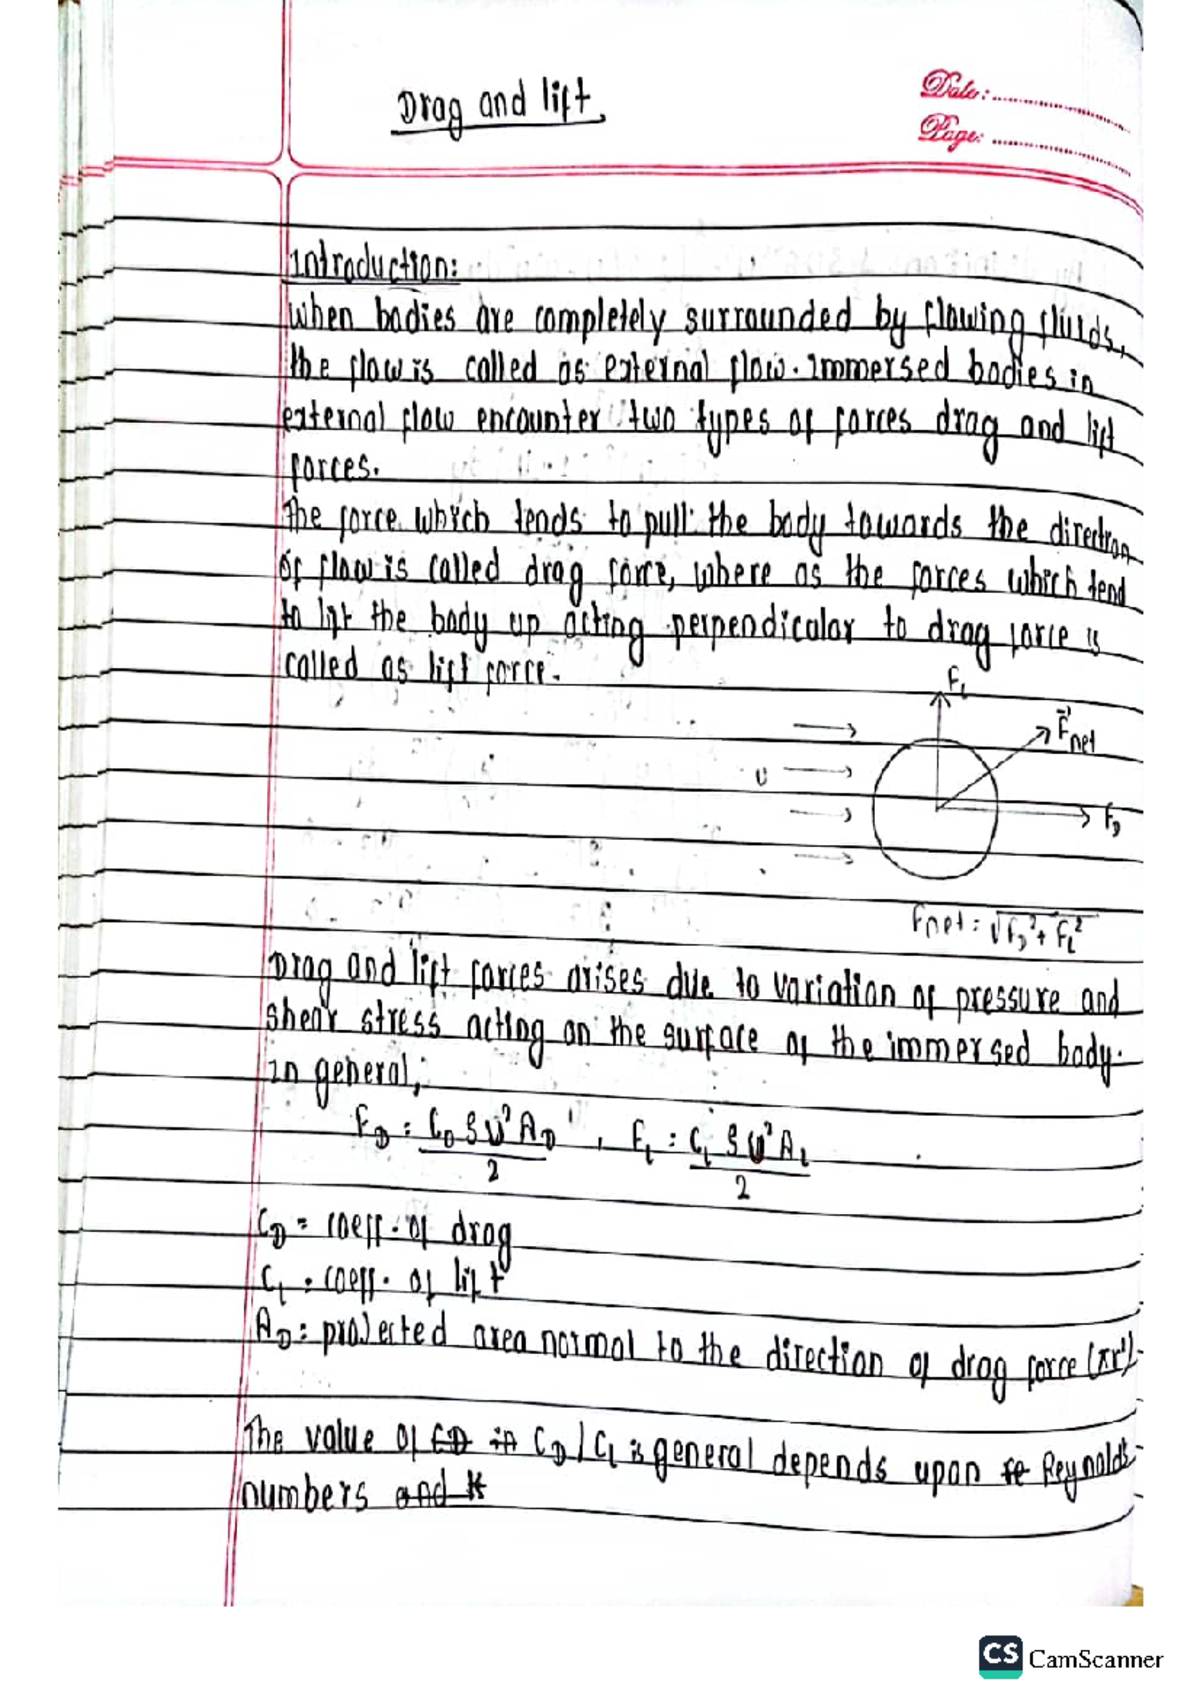 Drag and lift
Date:
Page:
Introduction:
When bodies are completely surrounded by flowing fluids,
the flow is called as external flow. Immersed bodies in
external flow encounter two types of forces drag and lift
forces.
The force which tends to pull the body towards the direction
of flow is called drag force, where as the forces which tend
to lift the body up acting perpendicular to drag force is
called as lift force.
FL
F⃗net
U
FD
Fnet = √FD² + FL²
Drag and lift forces arises due to variation of pressure and
shear stress acting on the surface of the immersed body.
In general,
FD = CD ρU²AD / 2 , FL = CL ρU²AL / 2
CD = coeff. of drag
CL = coeff. of lift
AD = projected area normal to the direction of drag force (πr²)
The value of CD in CD/CL is general depends upon re Reynold's
numbers and
CS CamScanner